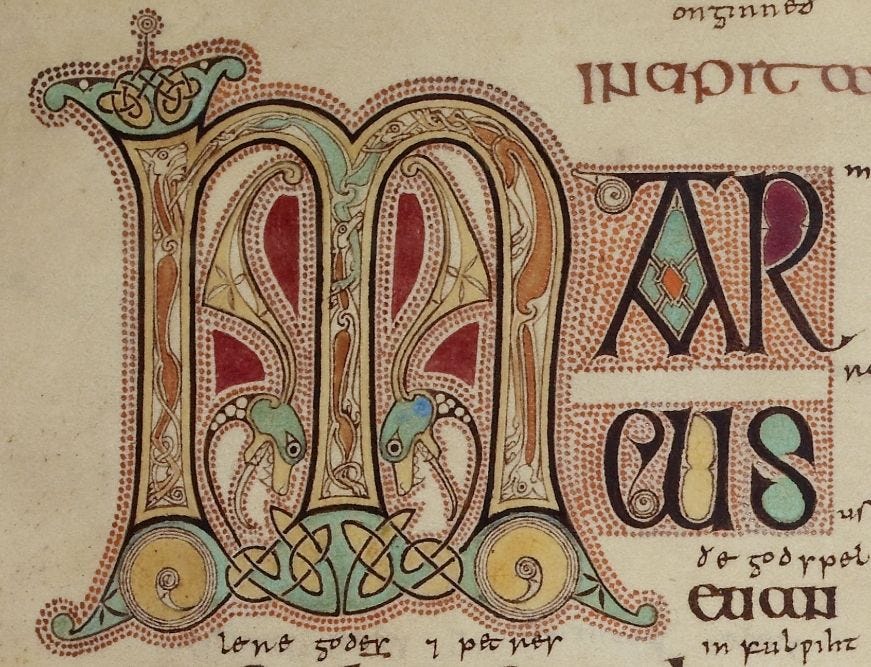 onginneð
INCIPIT
MAR
CUS
ðe godspel
EUAN
lene godes ⁊ petres
in fulƿiht